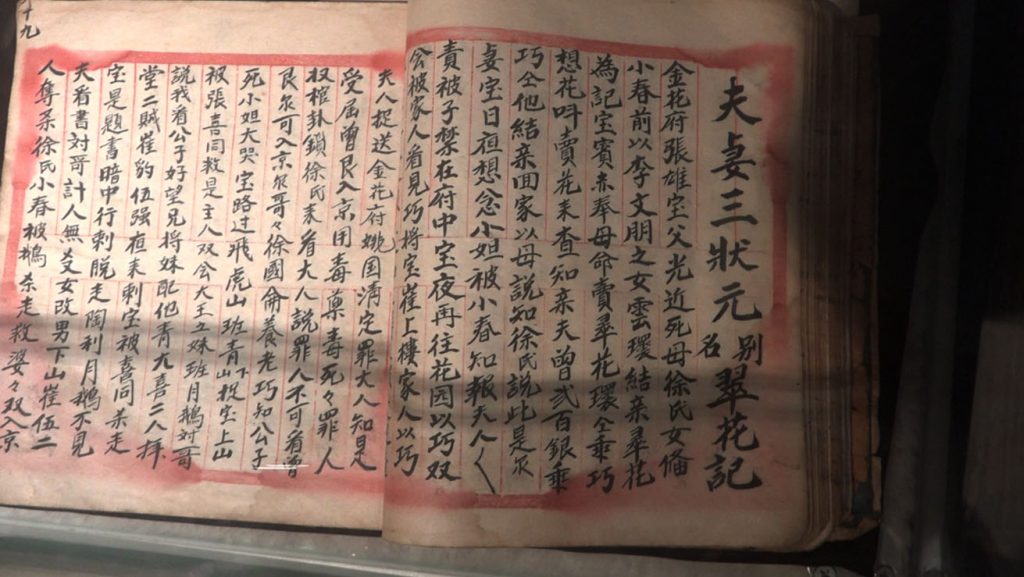 夫妾三狀元 别名 翠花記
金花府張雄宝父光近死母徐氏女俻
小春前以李文朋之女雲環結亲尋花
為記宝賓赤奉母命賣尋花環仝乖巧
想花呌賣花耒查知亲夫曾弍百銀乖
巧仝他結亲囬家以母説知徐氏説此是尔
妾宝日夜想念小姐被小春知報夫人
責被子禁在府中宝夜再往花园以巧双
会被家人看見巧將宝崔上樓家人以巧
夫人捉送金花府姚国清定罪大人知是
受屈曾艮入京用毒藥毒死々罪人
权棺卦鎖徐氏耒看大人説罪人不可看曾
艮尔可入京尔哥々徐國侖養老巧知公子
死小姐大哭宝路过飛虎山班青山下捉宝上山
被張喜同救是主人双会大王之妹班月鵝対哥
説我看公子好望兄將妹配他青大喜二人拜
堂二賊崔豹伍强夜耒刺宝被喜同杀走
宝是題書暗中行刺脱走陶利月鵝不見
夫看書対哥計人無爻女改男下山崔伍二
人奪杀徐氏小春被鵝杀走救婆々双入京
十九